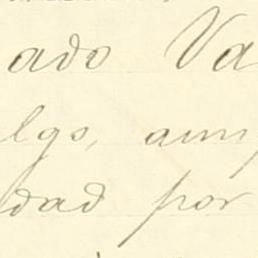 ado Va
lgo, aun
dad por